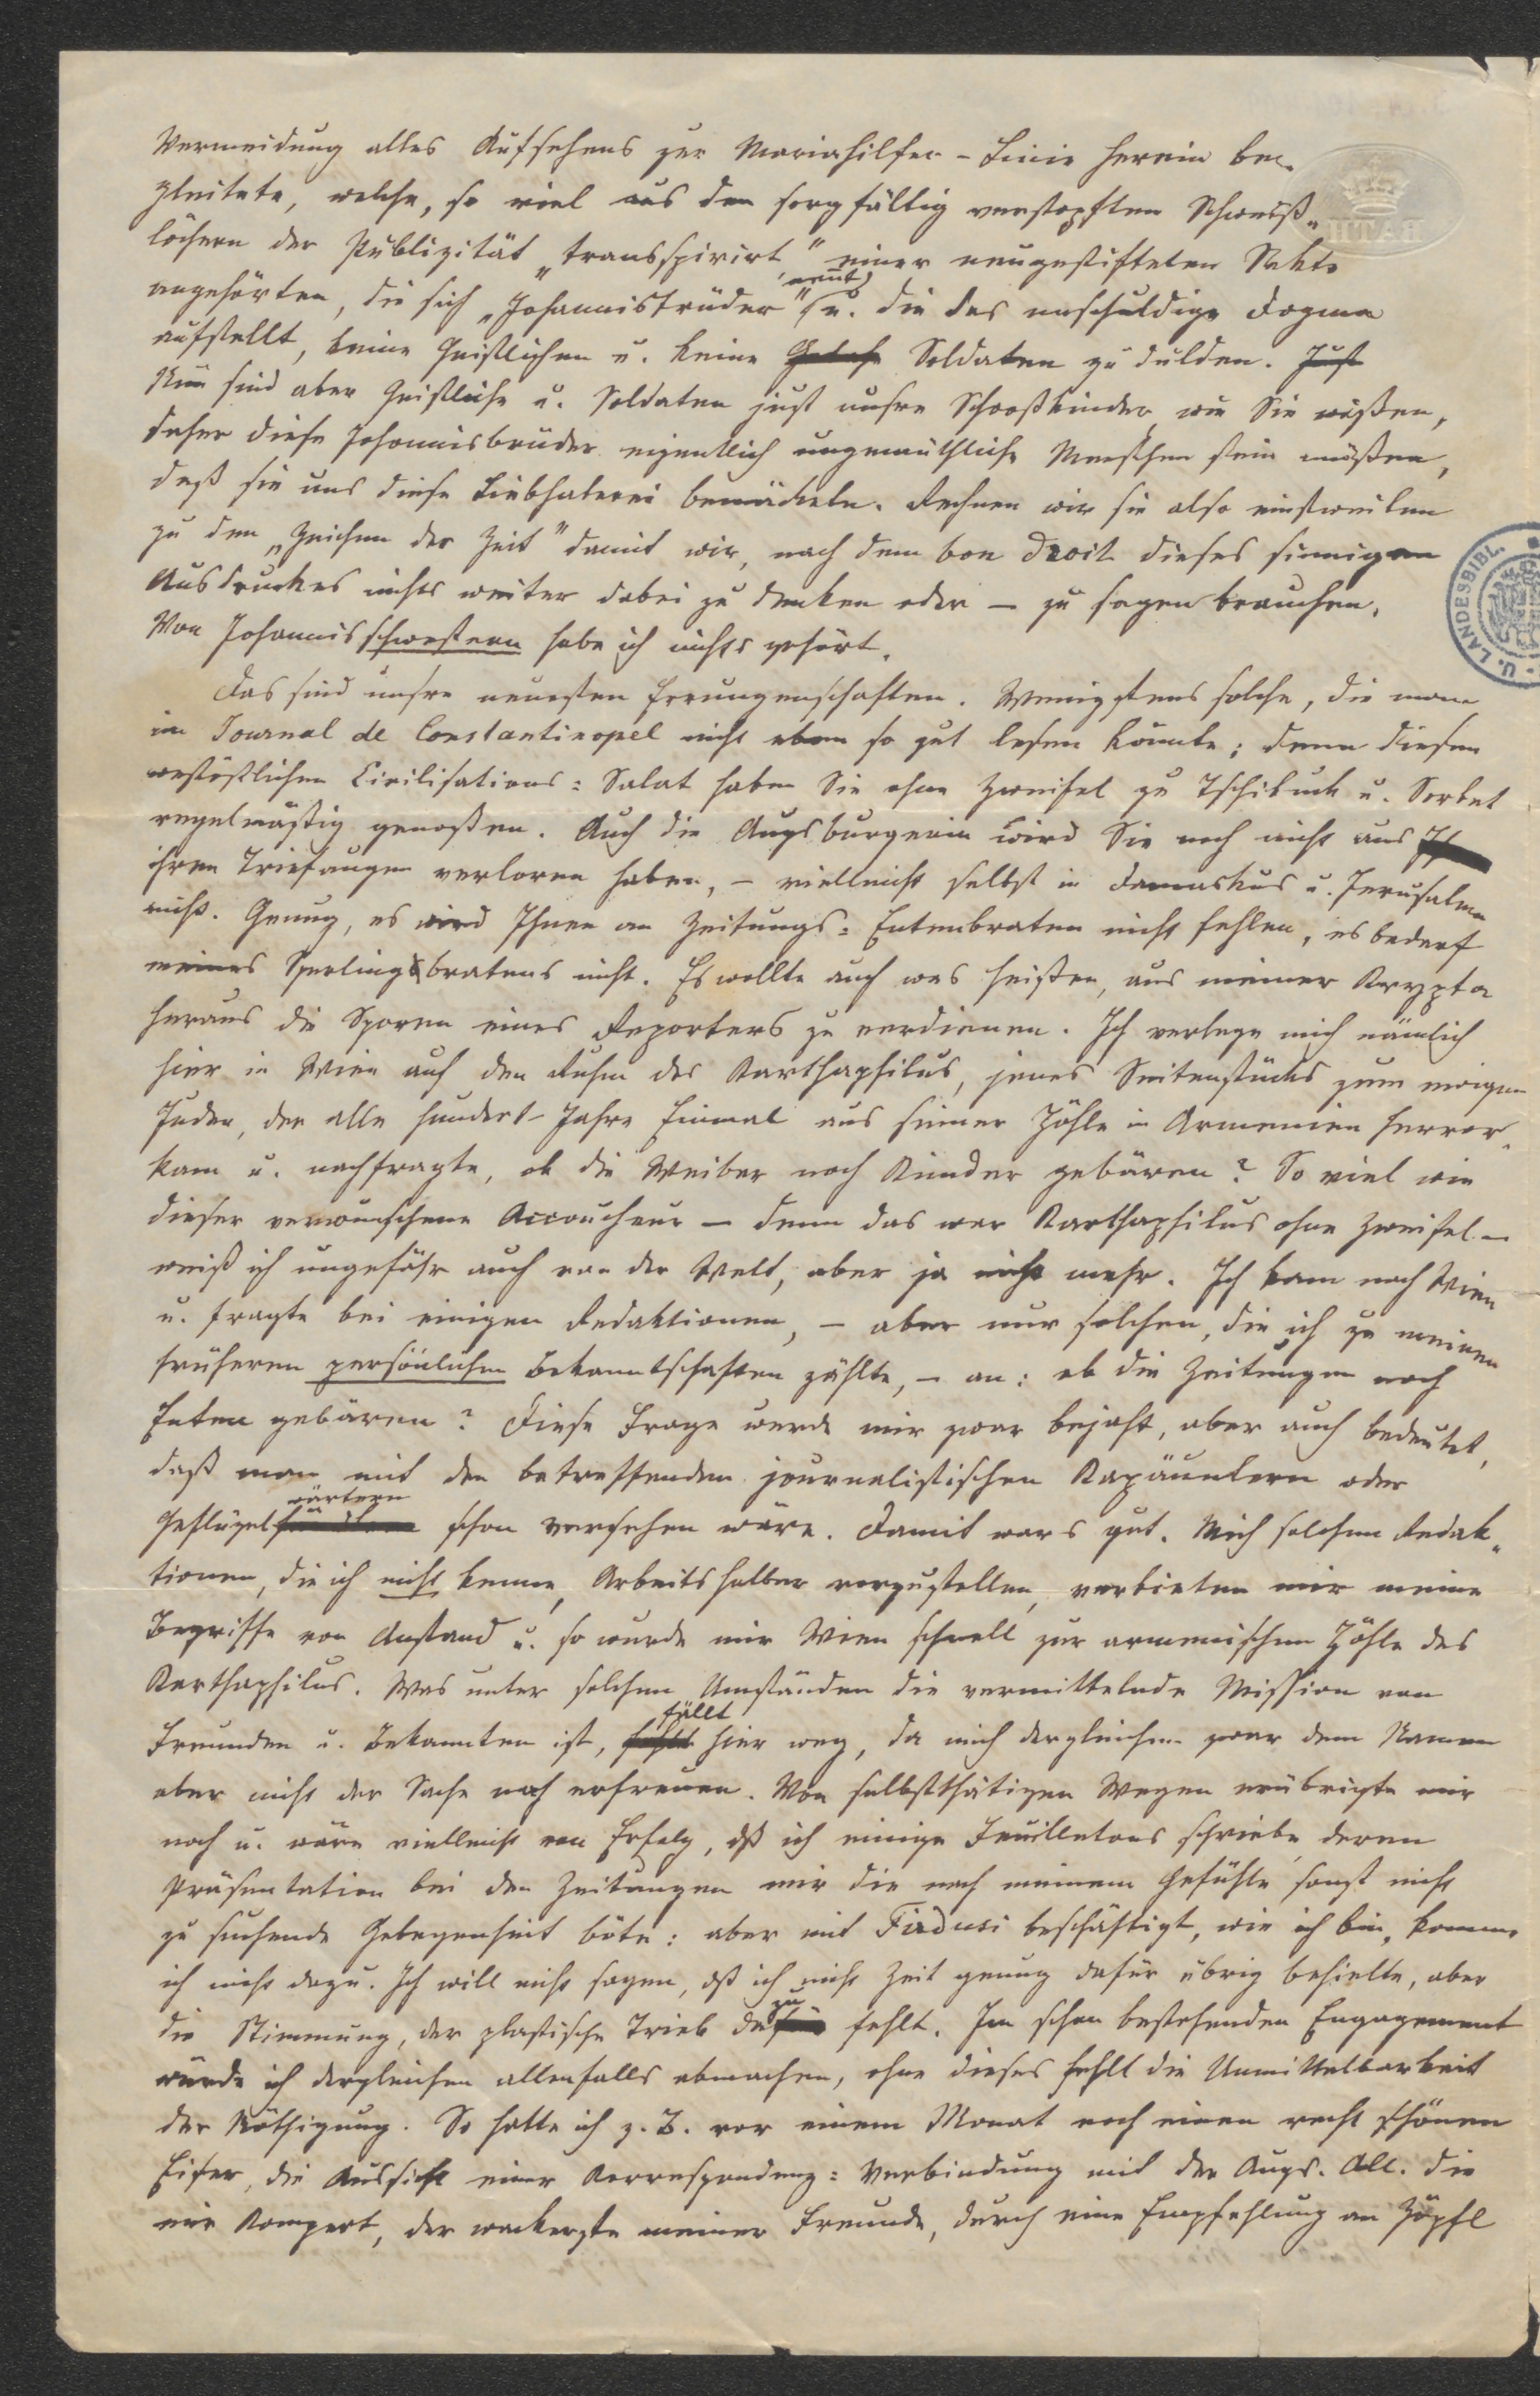 Vermeidung alles Aufsehens zur Mariahilfer-Linie herein be-
gleitete, welche, so viel aus den sorgfältig verstopften Schweiß-
löchern der Publizität „transspirirt“ einer neugestifteten Sekte
angehörten, die sich „Johannisbrüder“ nennt u. die das unschuldige Dogma
aufstellt, keine Geistlichen u. keine Soldaten zu dulden. Just
Nun sind aber Geistliche u. Soldaten just unsre Schooßkinder wie Sie wißen,
daher diese Johannisbrüder eigentlich ungemüthliche Menschen sein müßen,
daß sie uns diese Liebhaberei bemäckeln. Rechnen wir sie also einstweilen
zu den „Zeichen der Zeit“ damit wir, nach dem bon droit dieses sinnigen
Ausdruckes nichts weiter dabei zu denken oder – zu sagen brauchen.
Von Johannisschwestern habe ich nichts gehört.
Das sind unsre neuesten Errungenschaften. Wenigstens solche, die man
im Journal de Constantinopel nicht eben so gut lesen könnte; denn diesen
westöstlichen Civilisations=Salat haben Sie ohne Zweifel zu Tschibuck u. Sorbet
regelmäßig genoßen. Auch die Augsburgerin wird Sie noch nicht aus
ihren Triefaugen verloren haben, – vielleicht selbst in Damaskus u. Jerusalem
nicht. Genug, es wird Ihnen an Zeitungs=Entenbraten nicht fehlen, es bedarf
meines Sperlingsbratens nicht. Es wollte auch was heißen, aus meiner Krypta
heraus die Sporen eines Reporters zu verdienen. Ich verlege mich nämlich
hier in Wien auf den Ruhm des Karthaphilus, jenes Seitenstücks zum ewigen
Juden, der alle hundert Jahre Einmal aus seiner Höhle in Armenien hervor-
kam u. nachfragte, ob die Weiber noch Kinder gebären? So viel wie
dieser verwunschene Accoucheur – denn das war Karthaphilus ohne Zweifel –
weiß ich ungefähr auch von der Welt, aber ja nicht mehr. Ich kam nach Wien
u. fragte bei einigen Redaktionen, – aber nur solchen, die ich zu meinen
früheren persönlichen Bekanntschaften zählte, – an: ob die Zeitungen noch
Enten gebären? Diese Frage wurde mir zwar bejaht, aber auch bedeutet,
daß man mit den betreffenden journalistischen Kapäunlern oder
Geflügelwärtern schon versehen wäre. Damit wars gut. Mich solchen Redak-
tionen, die ich nicht kenne, Arbeitshalber vorzustellen, verbieten mir meine
Begriffe von Anstand u. so wurde mir Wien schnell zur armenischen Höhle des
Karthaphilus. Was unter solchen Umständen die vermittelnde Mission von
Freunden u. Bekannten ist, fällt hier weg, da mich dergleichen zwar dem Namen
aber nicht der Sache nach erfreuen. Von selbstthätigen Wegen erübrigte mir
noch u. wäre vielleicht von Erfolg, dß ich einige Feuilletons schriebe deren
Präsentation bei den Zeitungen mir die nach meinem Gefühle sonst nicht
zu suchende Gelegenheit böte: aber mit Firdusi beschäftigt, wie ich bin, komme
ich nicht dazu. Ich will nicht sagen, dß ich nicht Zeit genug dafür übrig behielte, aber
die Stimmung, der plastische Trieb dazu fehlt. Im schon bestehenden Engagement
würde ich dergleichen allenfalls abmachen, ohne dieses fehlt die Unmittelbarkeit
der Nöthigung. So hatte ich z. B. vor einem Monat noch einen recht schönen
Eifer, die Aussicht einer Korrespondenz=Verbindung mit der Augs. All. die
mir Kompert, der wackerste meiner Freunde, durch eine Empfehlung an Höpfl
U. LANDESBIBL.